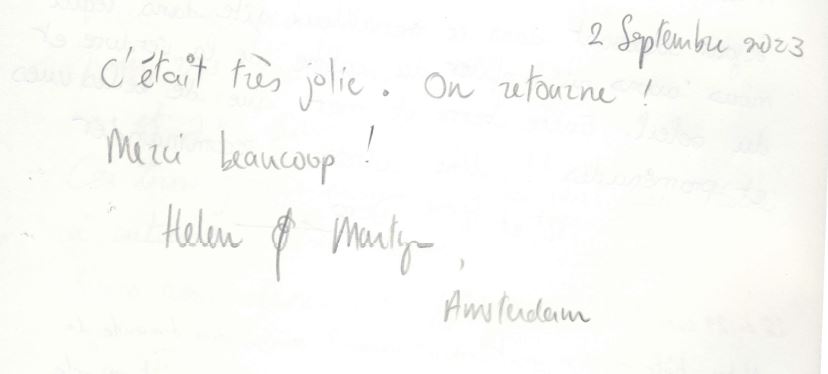 2 Septembre 2023
C'était très jolie. On retourne!
Merci beaucoup!
Helen & Martyn,
Amsterdam